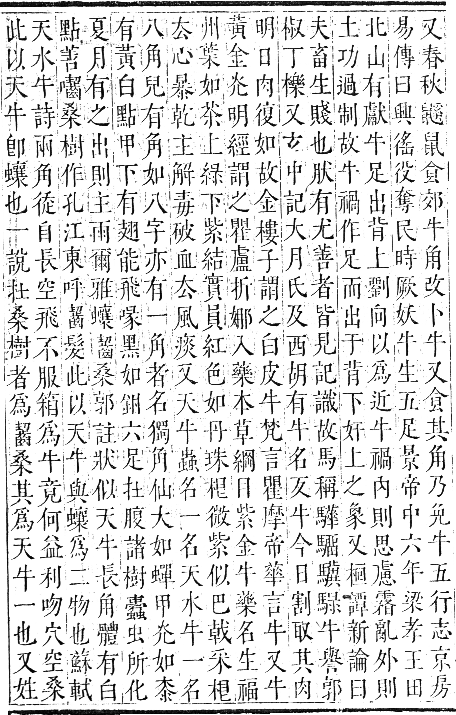 又春秋鼷鼠食郊牛角改卜牛又食其角乃免牛五行志京房
易傳曰興徭役奪民時厥妖牛生五足景帝中六年梁孝王田
北山有獻牛足出背上劉向以爲近牛禍内則思慮霿亂外則
土功過制故牛禍作足而出于背下奸上之象又桓譚新論曰
夫畜生賤也肰有尤善者皆見記識故馬稱驊騮驥騄牛譽郭
椒丁櫟又玄中記大月氏及西胡有牛名反牛今日割取其肉
明日肉復如故金樓子謂之白皮牛梵言瞿摩帝華言牛又牛
黃金炗明經謂之瞿盧折娜入藥本草綱目紫金牛藥名生福
州葉如茶上綠下紫結實員紅色如丹珠根微紫似巴戟采根
厺心暴乾主解毒破血厺風痰又天牛蟲名一名天水牛一名
八角兒有角如八字亦有一角者名獨角仙大如蟬甲炗如桼
有黃白點甲下有翅能飛喙黑如鉗六足在腹諸樹蠹虫所化
夏月有之出則主雨爾雅蠰齧桑郭註狀似天牛長角體有白
點善齧桑樹作孔江東呼齧髮此以天牛與蠰爲二物也蘇軾
天水牛詩兩角徒自長空飛不服箱爲牛竟何益利吻穴空桑
此以天牛卽蠰也一說在桑樹者爲齧桑其爲天牛一也又姓